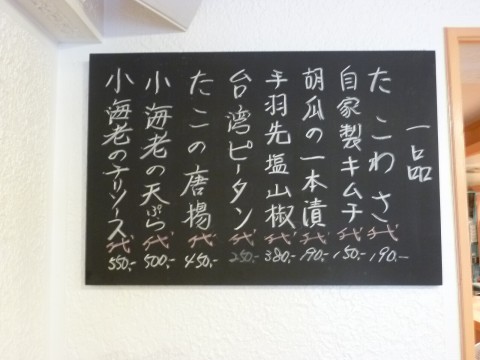 一品
たこわさ 代 190.-
自家製キムチ 代 150.-
胡瓜の一本漬 代 190.-
手羽先塩山椒 代 380.-
台湾ピータン 代 250.-
たこの唐揚 代 450.-
小海老の天ぷら 代 500.-
小海老のチリソース 代 550.-